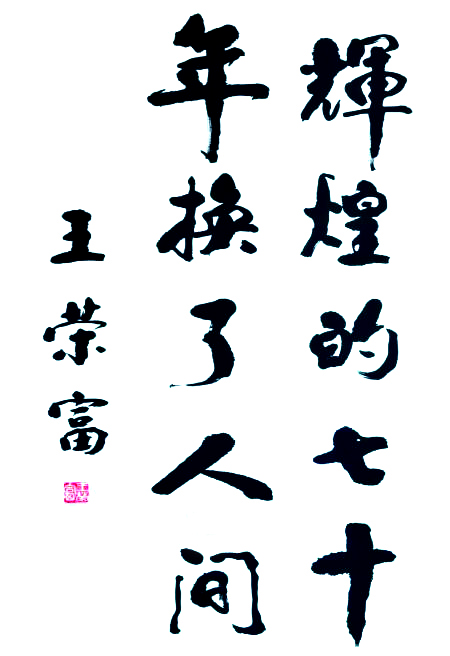 輝煌的七十
年换了人间
王荣富